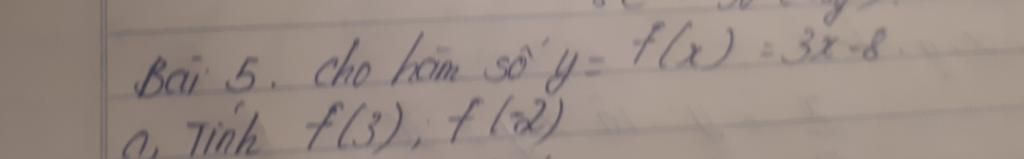 Bài 5. Cho hàm số y = f(x) = 3x - 8.
a, Tính f(3), f(-2)